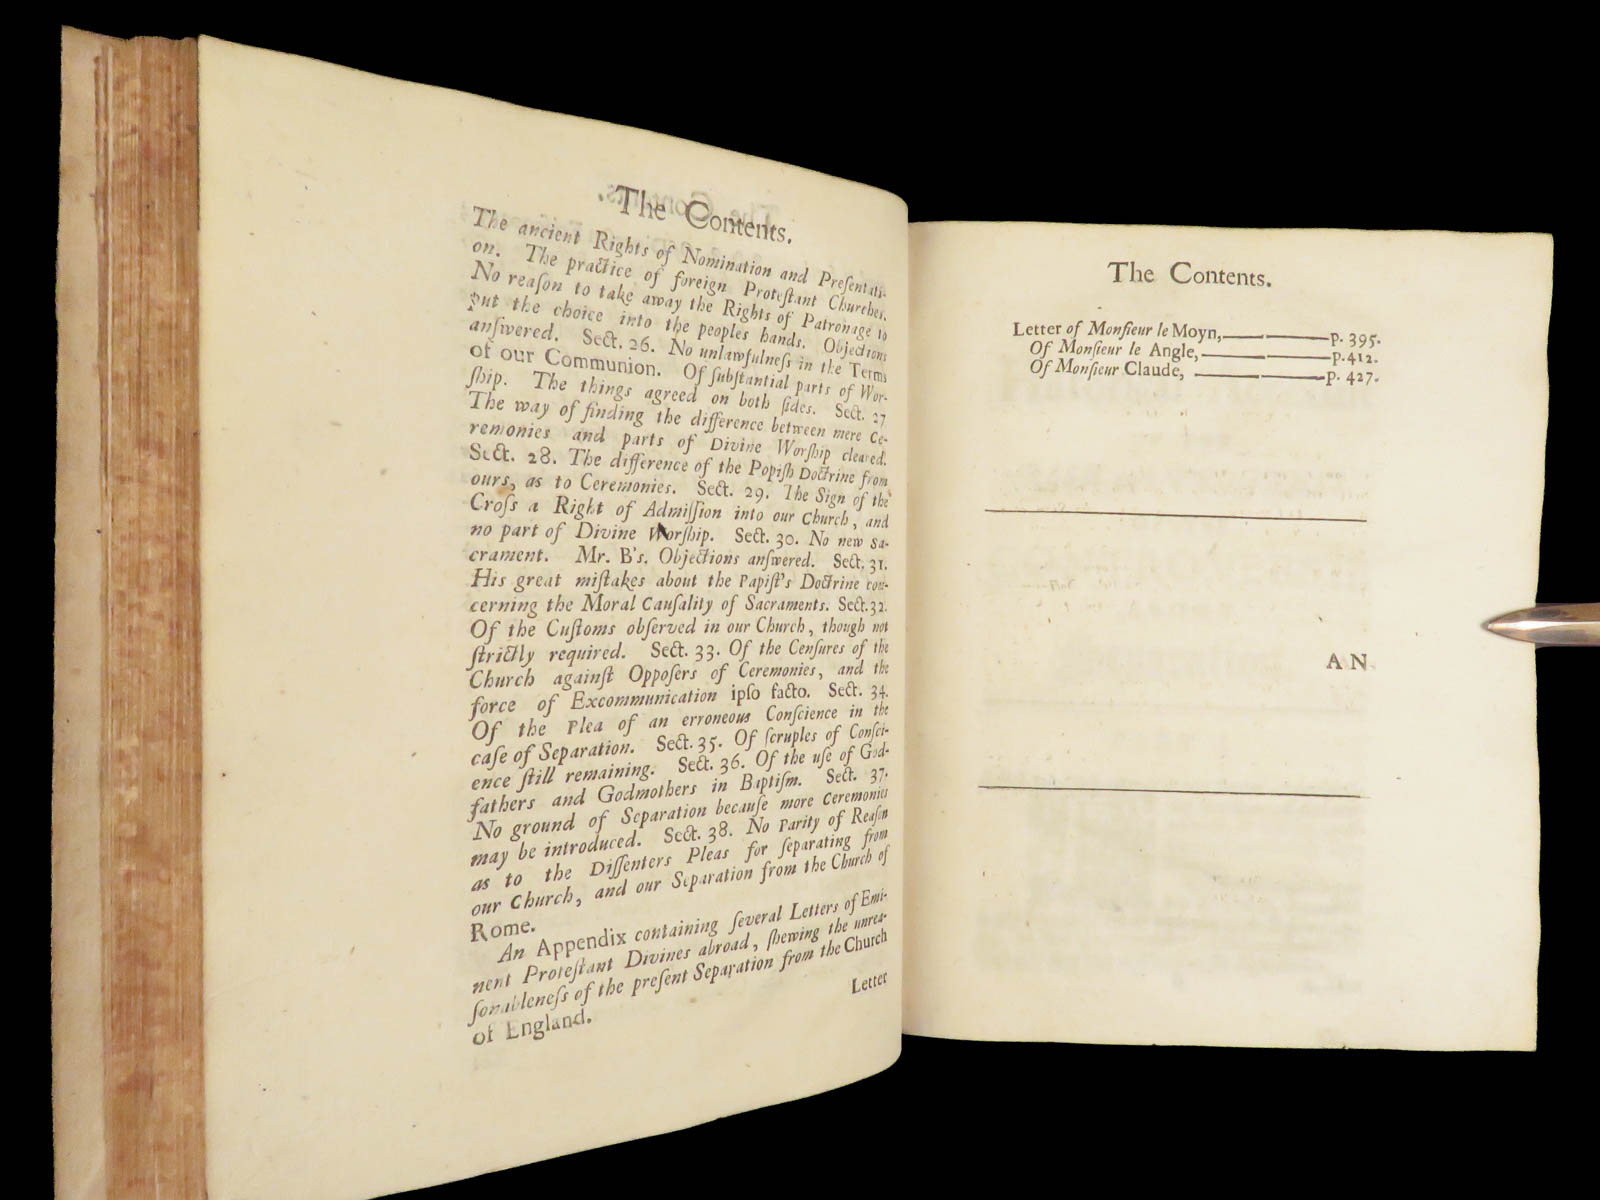 The Contents.
The ancient Rights of Nomination and Preſentati-
on. The practice of foreign Proteſtant Churches.
No reaſon to take away the Rights of Patronage to
put the choice into the peoples hands. Objections
anſwered. Sect. 26. No unlawfulneſs in the Terms
of our Communion. Of ſubſtantial parts of Wor-
ſhip. The things agreed on both ſides. Sect. 27
The way of finding the difference between mere Ce-
remonies and parts of Divine Worſhip cleared.
Sect. 28. The difference of the Popiſh Doctrine from
ours, as to Ceremonies. Sect. 29. The Sign of the
Croſs a Right of Admiſſion into our Church, and
no part of Divine Worſhip. Sect. 30. No new Sa-
crament. Mr. B's. Objections anſwered. Sect. 31.
His great miſtakes about the Papiſt's Doctrine con-
cerning the Moral Cauſality of Sacraments. Sect. 32.
Of the Cuſtoms obſerved in our Church, though not
ſtrictly required. Sect. 33. Of the Cenſures of the
Church againſt Oppoſers of Ceremonies, and the
force of Excommunication ipſo facto. Sect. 34.
Of the Plea of an erroneous Conſcience in the
caſe of Separation. Sect. 35. Of ſcruples of Conſci-
ence ſtill remaining. Sect. 36. Of the uſe of God-
fathers and Godmothers in Baptiſm. Sect. 37.
No ground of Separation becauſe more Ceremonies
may be introduced. Sect. 38. No Parity of Reaſon
as to the Diſſenters Pleas for ſeparating from
our Church, and our Separation from the Church of
Rome.
An Appendix containing ſeveral Letters of Emi-
nent Proteſtant Divines abroad, ſhewing the unrea-
ſonableneſs of the preſent Separation from the Church
of England.
Letter
The Contents.
Letter of Monſieur le Moyn,—— ——p. 395.
Of Monſieur le Angle,—— ——p. 412.
Of Monſieur Claude, —— ——p. 427.
AN